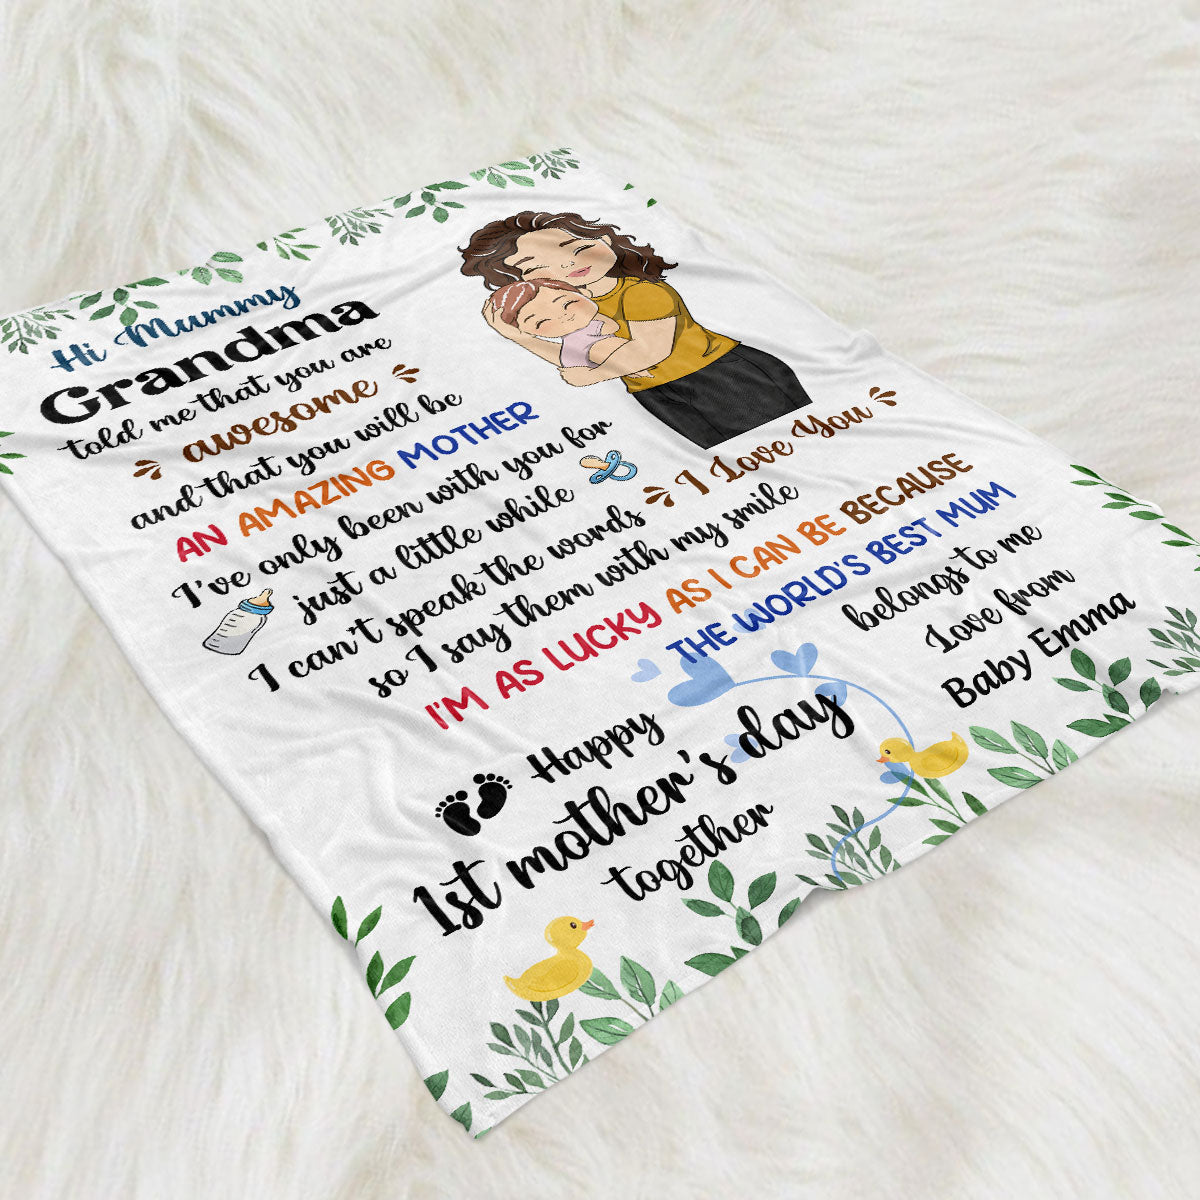 Hi Mummy
Grandma
told me that you are
awesome
and that you will be
AN AMAZING MOTHER
I've only been with you for
just a little while
I can't speak the words I Love You
so I say them with my smile
I'M AS LUCKY AS I CAN BE BECAUSE
THE WORLD'S BEST MUM
belongs to me
Love from
Baby Emma
Happy
1st mother's day
together